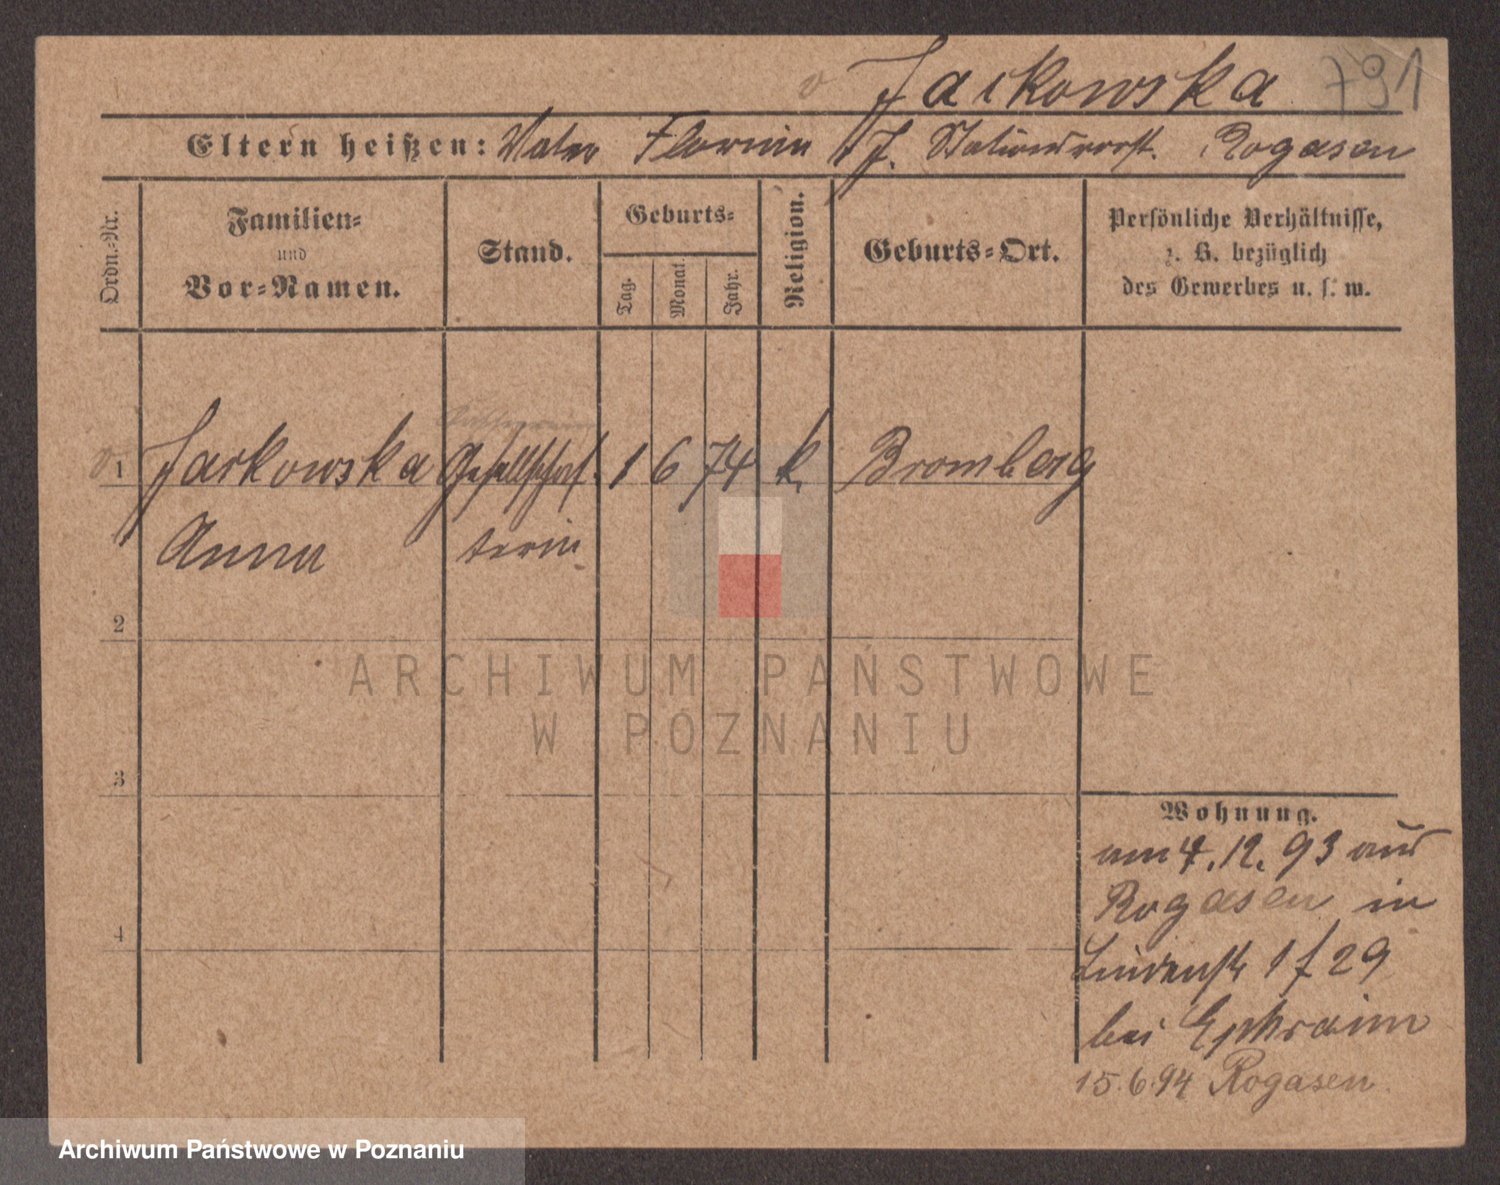 Jarkowska 791
Eltern heißen: Vater Florian J. Stationsvorst. Rogasen
Ordn.-Nr.
Familien-
und
Vor-Namen.
Stand.
Geburts-
Tag.
Monat.
Jahr.
Religion.
Geburts-Ort.
Persönliche Verhältnisse,
z. B. bezüglich
des Gewerbes u. s. w.
1 Jarkowska Gesellschaf- 1 6 74 k. Bromberg
Anna terin
2
3
4
Wohnung.
am 4.12.93 aus
Rogasen in
Lindenstr 1 f 29
bei Ephraim
15.6.94 Rogasen
ARCHIWUM PAŃSTWOWE
W POZNANIU
Archiwum Państwowe w Poznaniu